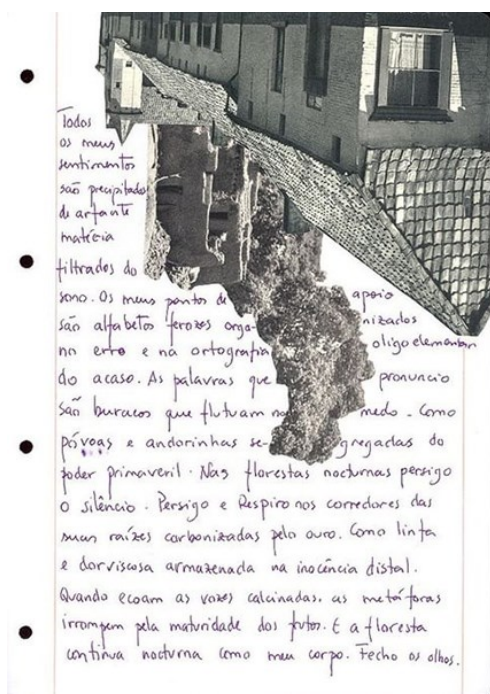 Todos
os meus
sentimentos
são precipitados
de arfante
matéria
filtrados do
sono. Os meus pontos de apoio
são alfabetos ferozes orga- nizados
no erro e na ortografia oligoelementar
do acaso. As palavras que pronuncio
são buracos que flutuam no medo. Como
póvoas e andorinhas se- gregadas do
poder primaveril. Nas florestas nocturnas persigo
o silêncio. Persigo e Respiro nos corredores das
suas raízes carbonizadas pelo ouro. Como linfa
e dor viscosa armazenada na inocência distal.
Quando ecoam as vozes calcinadas, as metáforas
irrompem pela maturidade dos frutos. E a floresta
continua nocturna como meu corpo. Fecho os olhos.